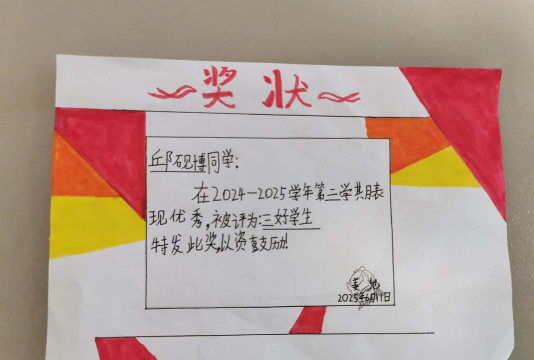 奖状
邱砚博同学:
在2024-2025学年第二学期表
现优秀,被评为:三好学生
特发此奖,以资鼓励!
2025年6月1日